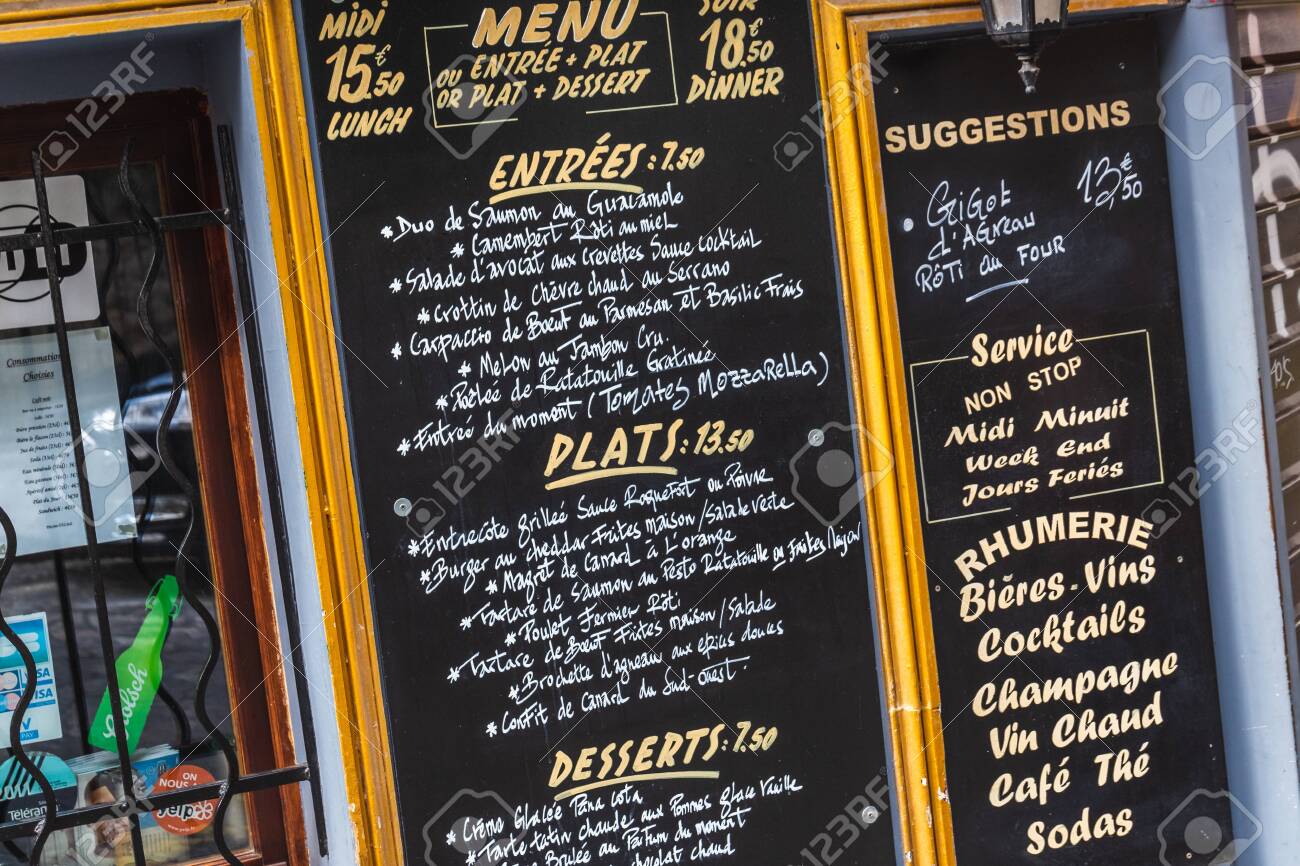 MIDI
15€50
LUNCH
MENU
OU ENTRÉE + PLAT
OR PLAT + DESSERT
SOIR
18€50
DINNER
ENTRÉES : 7.50
* Duo de Saumon au Guacamole
* Camembert Rôti au miel
* Salade d'avocat aux crevettes Sauce cocktail
* Crottin de Chèvre chaud au Serrano
* Carpaccio de Bœuf au Parmesan et Basilic Frais
* Melon au Jambon Cru.
* Poêlée de Ratatouille Gratinée
* Entrée du moment (Tomates Mozzarella)
PLATS : 13.50
* Entrecôte grillée Sauce Roquefort ou Poivre
* Burger au cheddar Frites maison / Salade verte
* Magret de Canard à L'orange
* Tartare de Saumon au Pesto Ratatouille ou Frites
* Poulet Fermier Rôti
* Tartare de Bœuf Frites maison / Salade
* Brochette d'agneau aux epices douces
* Confit de Canard du Sud-ouest
DESSERTS : 7.50
* Crème Glacée Pana cota
* Tarte tatin chaude aux Pommes glace Vanille
Brulée au Parfum du moment
chocolat chaud
SUGGESTIONS
• Gigot 13€50
d'Agneau
Rôti au Four
Service
NON STOP
Midi Minuit
Week End
Jours Feriés
RHUMERIE
Bières - Vins
Cocktails
Champagne
Vin Chaud
Café Thé
Sodas
Consommation
Choisies
Grolsch
VISA
VISA
PAY
ON
NOUS
yelp
123RF